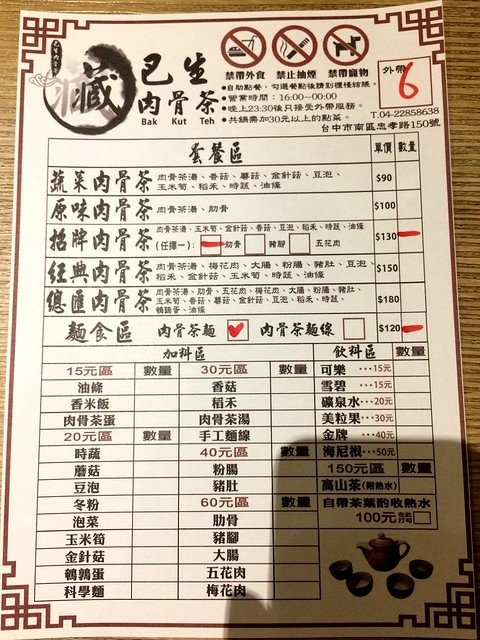 藏 巴生
肉骨茶
Bak Kut Teh
禁帶外食 禁止抽煙 禁帶寵物
外帶 6
•自助點餐，勾選餐點後請到櫃檯結帳。
•營業時間：16:00~00:00
•晚上23:30後只接受外帶服務。
•共鍋需加30元以上的點菜。
T.04-22858638
台中市南區忠孝路150號
套餐區 單價 數量
蔬菜肉骨茶 肉骨茶湯、香菇、蘑菇、金針菇、豆泡、玉米筍、稻禾、時蔬、油條 $90
原味肉骨茶 肉骨茶湯、肋骨 $100
招牌肉骨茶 肉骨茶湯、玉米筍、金針菇、香菇、豆泡、稻禾、時蔬、油條
(任擇一)： 肋骨 豬腳 五花肉 $130
經典肉骨茶 肉骨茶湯、梅花肉、大腸、粉腸、豬肚、豆泡、稻禾、金針菇、玉米筍、時蔬、油條 $150
總匯肉骨茶 肉骨茶湯、肋骨、五花肉、梅花肉、大腸、粉腸、豬肚、玉米筍、香菇、蘑菇、金針菇、豆泡、稻禾、時蔬、鵪鶉蛋、油條 $180
麵食區 肉骨茶麵 肉骨茶麵線 $120
加料區 飲料區 數量
15元區 數量 30元區 數量 可樂 ···15元
油條 香菇 雪碧 ···15元
香米飯 稻禾 礦泉水 ···20元
肉骨茶蛋 肉骨茶湯 美粒果 ···30元
20元區 數量 手工麵線 金牌 ···40元
時蔬 40元區 數量 海尼根 ···50元
蘑菇 粉腸 150元區 數量
豆泡 豬肚 高山茶(附熱水)
冬粉 60元區 數量 自帶茶葉酌收熱水
泡菜 肋骨 100元 在此打勾
玉米筍 豬腳
金針菇 大腸
鵪鶉蛋 五花肉
科學麵 梅花肉